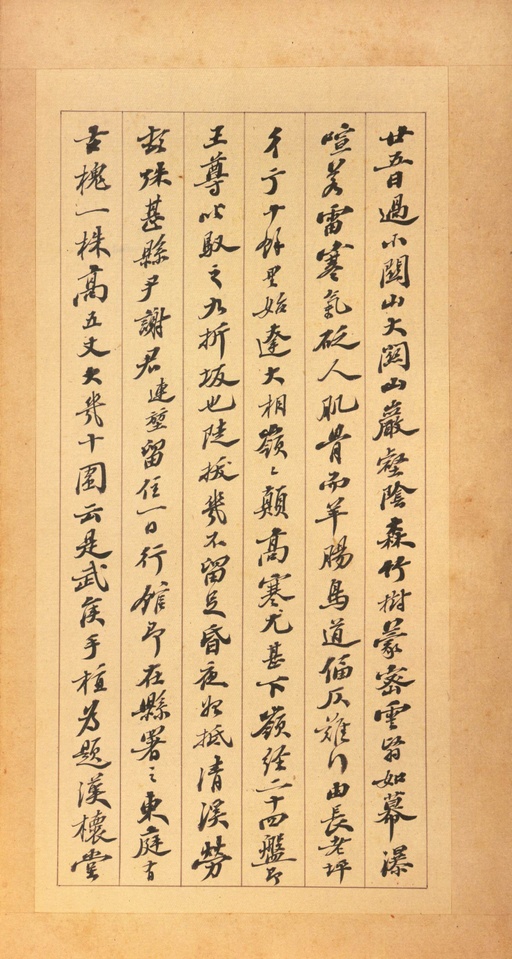 廿五日過小關山大關山巖壑陰森竹樹蒙密雲翳如幕瀑
喧若雷寒氣砭人肌骨而羊腸鳥道偪仄難行由長老坪
彳亍十餘里始達大相嶺〻顛高寒尤甚下嶺經二十四盤即
王尊叱馭之九折坂也陡拔幾不留足昏夜始抵清溪勞
頓殊甚縣尹謝君連堃留住一日行館即在縣署之東庭有
古槐一株高五丈大幾十圍云是武侯手植為題漢槐堂